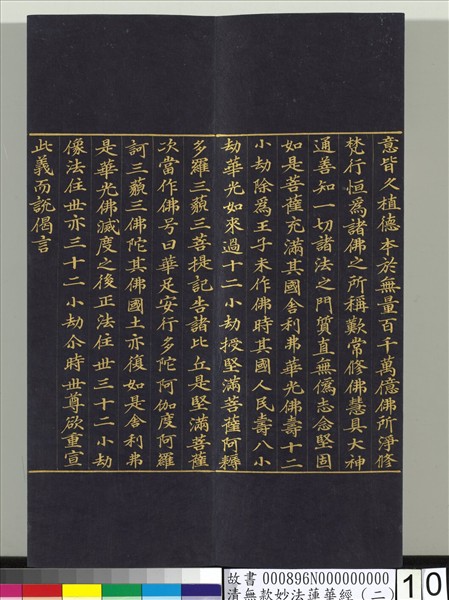 意皆久植德本於無量百千萬億佛所淨修
梵行恒為諸佛之所稱歎常修佛慧具大神
通善知一切諸法之門質直無偽志念堅固
如是菩薩充滿其國舍利弗華光佛壽十二
小劫除為王子未作佛時其國人民壽八小
劫華光如來過十二小劫授堅滿菩薩阿耨
多羅三藐三菩提記告諸比丘是堅滿菩薩
次當作佛号曰華足安行多陀阿伽度阿羅
訶三藐三佛陀其佛國土亦復如是舍利弗
是華光佛滅度之後正法住世三十二小劫
像法住世亦三十二小劫尒時世尊欲重宣
此義而說偈言
故書 000896N000000000
清無款妙法蓮華經(二)
10